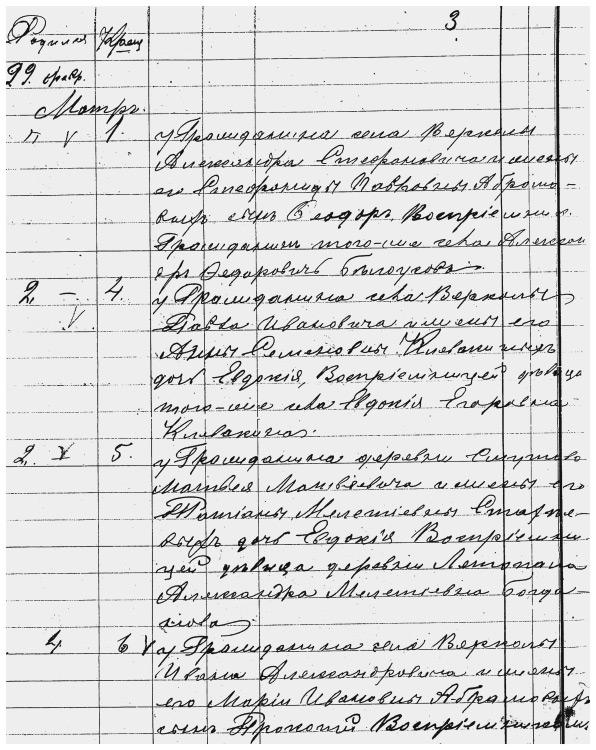 3
Родился Крещ
29. февр.
Мартъ.
1. у Гражданина села Верколы
Александра Стефановича и жены
его Стефаниды Павловны Абрамо-
выхъ сынъ Ѳеодоръ. Воспріемникъ
Гражданинъ того-же села Алексан
ѳедоровичъ Бѣлоусовъ.
2 – 4. у Гражданина села Верколы
Павла Ивановича и жены его
Анны Семеновны Клевакиныхъ
дочь Евдокія, Воспріемницей дѣвица
того-же села Евдокія Егоровна
Клевакина.
2. 5. у Гражданина деревни
Матвея Матвѣевича и жены его
Татіаны Мелетіевны
выхъ дочь Евдокія Воспріемни
цей дѣвица деревни Летопала
Александра Мелетіевна Богда
нова
4 6 у Гражданина села Верколы
Ивана Александровича и жены
его Маріи Ивановны Абрамовыхъ
сынъ Прокопій Воспріемникомъ